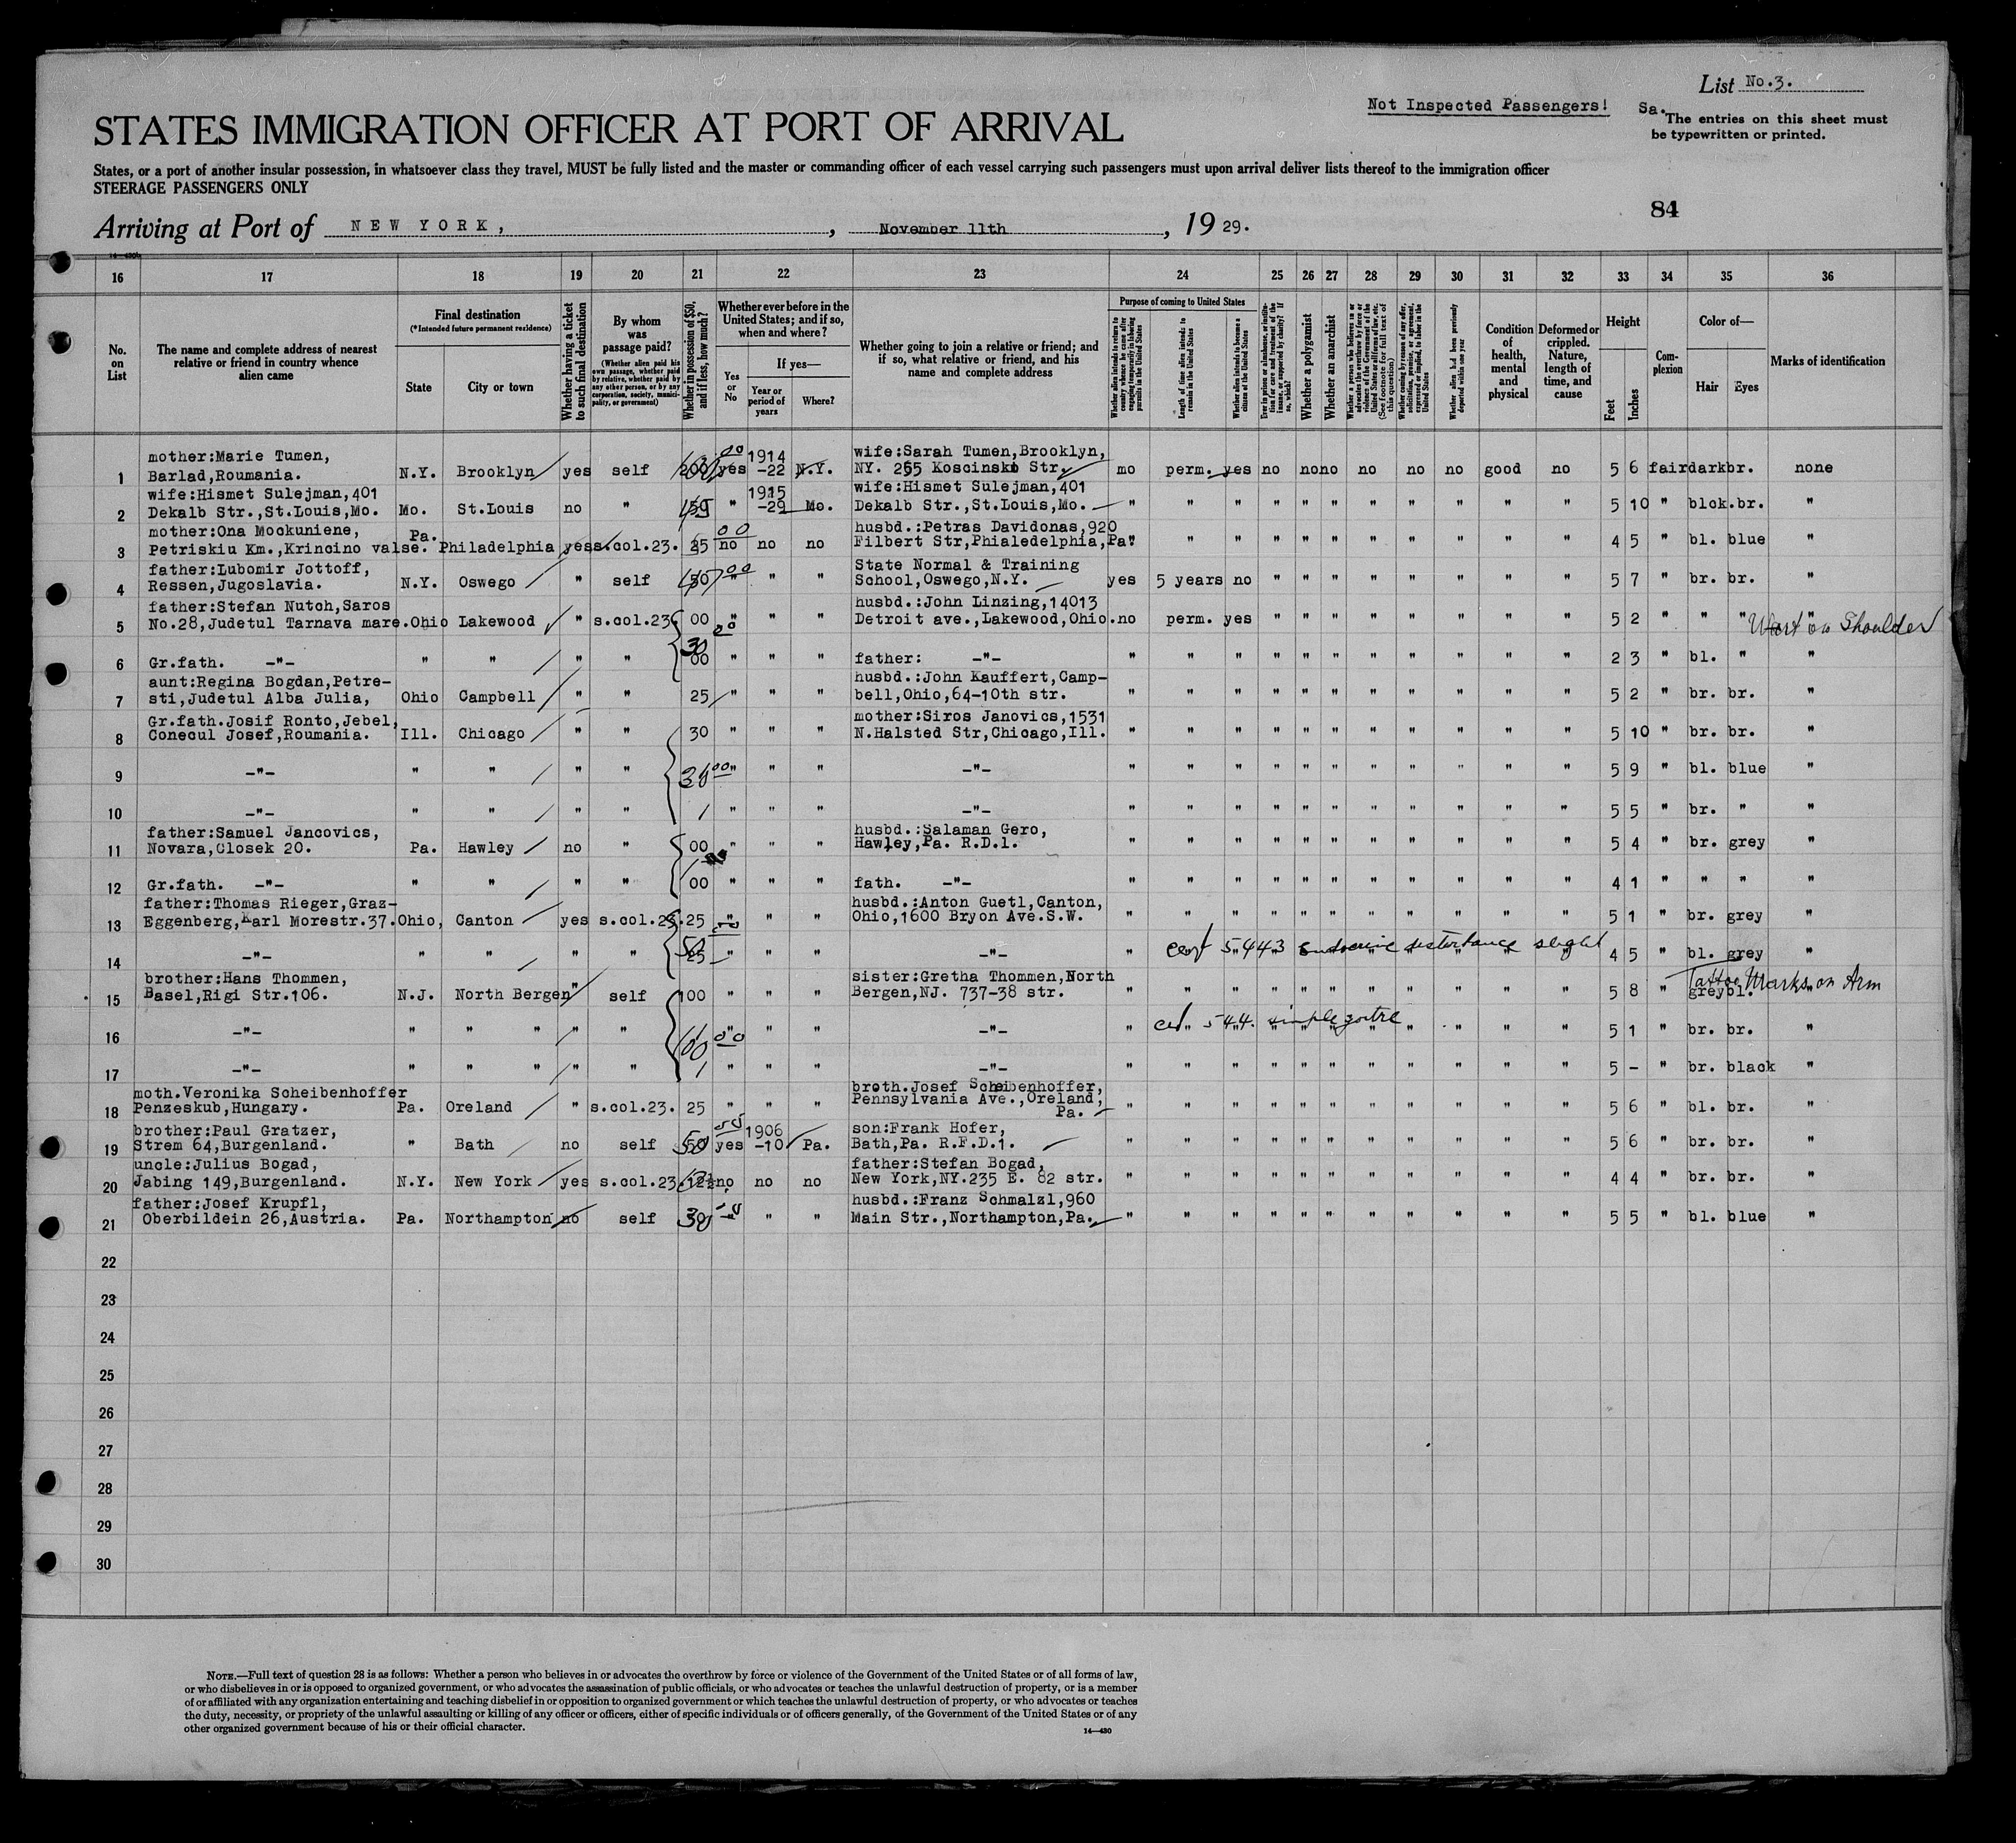 List No.3.
Not Inspected Passengers!
Sa. The entries on this sheet must
be typewritten or printed.
STATES IMMIGRATION OFFICER AT PORT OF ARRIVAL
States, or a port of another insular possession, in whatsoever class they travel, MUST be fully listed and the master or commanding officer of each vessel carrying such passengers must upon arrival deliver lists thereof to the immigration officer
STEERAGE PASSENGERS ONLY
84
Arriving at Port of NEW YORK, , November 11th , 19 29.
16 17 18 19 20 21 22 23 24 25 26 27 28 29 30 31 32 33 34 35 36
No. on List
The name and complete address of nearest relative or friend in country whence alien came
Final destination
(*Intended future permanent residence)
State
City or town
Whether having a ticket to such final destination
By whom was passage paid?
(Whether alien paid his own passage, whether paid by relative, whether paid by any other person, or by any corporation, society, municipality, or government)
Whether in possession of $50, and if less, how much?
Whether ever before in the United States; and if so, when and where?
Yes or No
If yes—
Year or period of years
Where?
Whether going to join a relative or friend; and if so, what relative or friend, and his name and complete address
Purpose of coming to United States
Whether alien intends to return to country whence he came after engaging temporarily in laboring pursuits in the United States
Length of time alien intends to remain in the United States
Whether alien intends to become a citizen of the United States
Ever in prison or almshouse, or institution for care and treatment of the insane, or supported by charity? If so, which?
Whether a polygamist
Whether an anarchist
Whether coming by reason of any offer, solicitation, promise, or agreement, expressed or implied, to labor in the United States
Whether alien had been previously deported within one year
Condition of health, mental and physical
Deformed or crippled. Nature, length of time, and cause
Height
Feet
Inches
Complexion
Color of—
Hair
Eyes
Marks of identification
mother:Marie Tumen, 1914 wife:Sarah Tumen,Brooklyn,
1 Barlad,Roumania. N.Y. Brooklyn yes self yes -22 N.Y. NY. 255 Koscinsko Str. mo perm. yes no no no no no no good no 5 6 fair dark br. none
wife:Hismet Sulejman,401 1915 wife:Hismet Sulejman,401
2 Dekalb Str.,St.Louis,Mo. Mo. St.Louis no " " -29 Mo. Dekalb Str.,St.Louis,Mo. " " " " " " " " " " " 5 10 " blck. br. "
mother:Ona Mockuniene, Pa. husbd.:Petras Davidonas,920
3 Petriskiu Km.,Krincino valse. Philadelphia yes s.col.23. 25 no no no Filbert Str,Phialedelphia,Pa. " " " " " " " " " " " 4 5 " bl. blue "
father:Lubomir Jottoff, State Normal & Training
4 Ressen,Jugoslavia. N.Y. Oswego " self " " " School,Oswego,N.Y. yes 5 years no " " " " " " " " 5 7 " br. br. "
father:Stefan Nutch,Saros husbd.:John Linzing,14013
5 No.28,Judetul Tarnava mare. Ohio Lakewood " s.col.23 00 " " " Detroit ave.,Lakewood,Ohio. no perm. yes " " " " " " " " 5 2 " " " Wart on Shoulder
30
6 Gr.fath. -"- " " " " 00 " " " father: -"- " " " " " " " " " " " 2 3 " bl. " "
aunt:Regina Bogdan,Petre- husbd.:John Kauffert,Camp-
7 sti,Judetul Alba Julia, Ohio Campbell " " 25 " " " bell,Ohio,64-10th str. " " " " " " " " " " " 5 2 " br. br. "
Gr.fath.Josif Ronto,Jebel, mother:Siros Janovics,1531
8 Conecul Josef,Roumania. Ill. Chicago " " 30 " " " N.Halsted Str,Chicago,Ill. " " " " " " " " " " " 5 10 " br. br. "
9 -"- " " " " " " " -"- " " " " " " " " " " " 5 9 " bl. blue "
10 -"- " " " " " " " -"- " " " " " " " " " " " 5 5 " br. " "
father:Samuel Jancovics, husbd.:Salaman Gero,
11 Novara,Closek 20. Pa. Hawley no " 00 " " " Hawley,Pa. R.D.1. " " " " " " " " " " " 5 4 " br. grey "
12 Gr.fath. -"- " " " " 00 " " " fath. -"- " " " " " " " " " " " 4 1 " " " "
father:Thomas Rieger,Graz- husbd.:Anton Guetl,Canton,
13 Eggenberg,Karl Morestr.37. Ohio, Canton yes s.col.23. 25 " " " Ohio,1600 Bryon Ave.S.W. " " " " " " " " " " " 5 1 " br. grey "
14 -"- " " " " 25 " " " -"- " cert 5443 endocrine disturbance slight 4 5 " bl. grey
brother:Hans Thommen, sister:Gretha Thommen,North
15 Basel,Rigi Str.106. N.J. North Bergen " self 100 " " " Bergen,NJ. 737-38 str. " " " " " " " " " " " 5 8 " grey bl. Tattoo Marks on Arm
16 -"- " " " " " " " " -"- " cert 544. simple goitre " " " " 5 1 " br. br. "
17 -"- " " " " " " " " -"- " " " " " " " " " " " 5 - " br. black "
moth.Veronika Scheibenhoffer broth.Josef Scheibenhoffer,
18 Penzeskub,Hungary. Pa. Oreland " s.col.23. 25 " " " Pennsylvania Ave.,Oreland, Pa. " " " " " " " " " " " 5 6 " bl. br. "
brother:Paul Gratzer, 1906 son:Frank Hofer,
19 Strem 64,Burgenland. " Bath no self 50 yes -10 Pa. Bath,Pa. R.F.D.1. " " " " " " " " " " " 5 6 " br. br. "
uncle:Julius Bogad, father:Stefan Bogad,
20 Jabing 149,Burgenland. N.Y. New York yes s.col.23. 12½ no no no New York,NY.235 E. 82 str. " " " " " " " " " " " 4 4 " br. br. "
father:Josef Krupfl, husbd.:Franz Schmalzl,960
21 Oberbildein 26,Austria. Pa. Northampton no self 30 " " " Main Str.,Northampton,Pa. " " " " " " " " " " " 5 5 " bl. blue "
22
23
24
25
26
27
28
29
30
NOTE.—Full text of question 28 is as follows: Whether a person who believes in or advocates the overthrow by force or violence of the Government of the United States or of all forms of law,
or who disbelieves in or is opposed to organized government, or who advocates the assassination of public officials, or who advocates or teaches the unlawful destruction of property, or is a member
of or affiliated with any organization entertaining and teaching disbelief in or opposition to organized government or which teaches the unlawful destruction of property, or who advocates or teaches
the duty, necessity, or propriety of the unlawful assaulting or killing of any officer or officers, either of specific individuals or of officers generally, of the Government of the United States or of any
other organized government because of his or their official character.
14—430